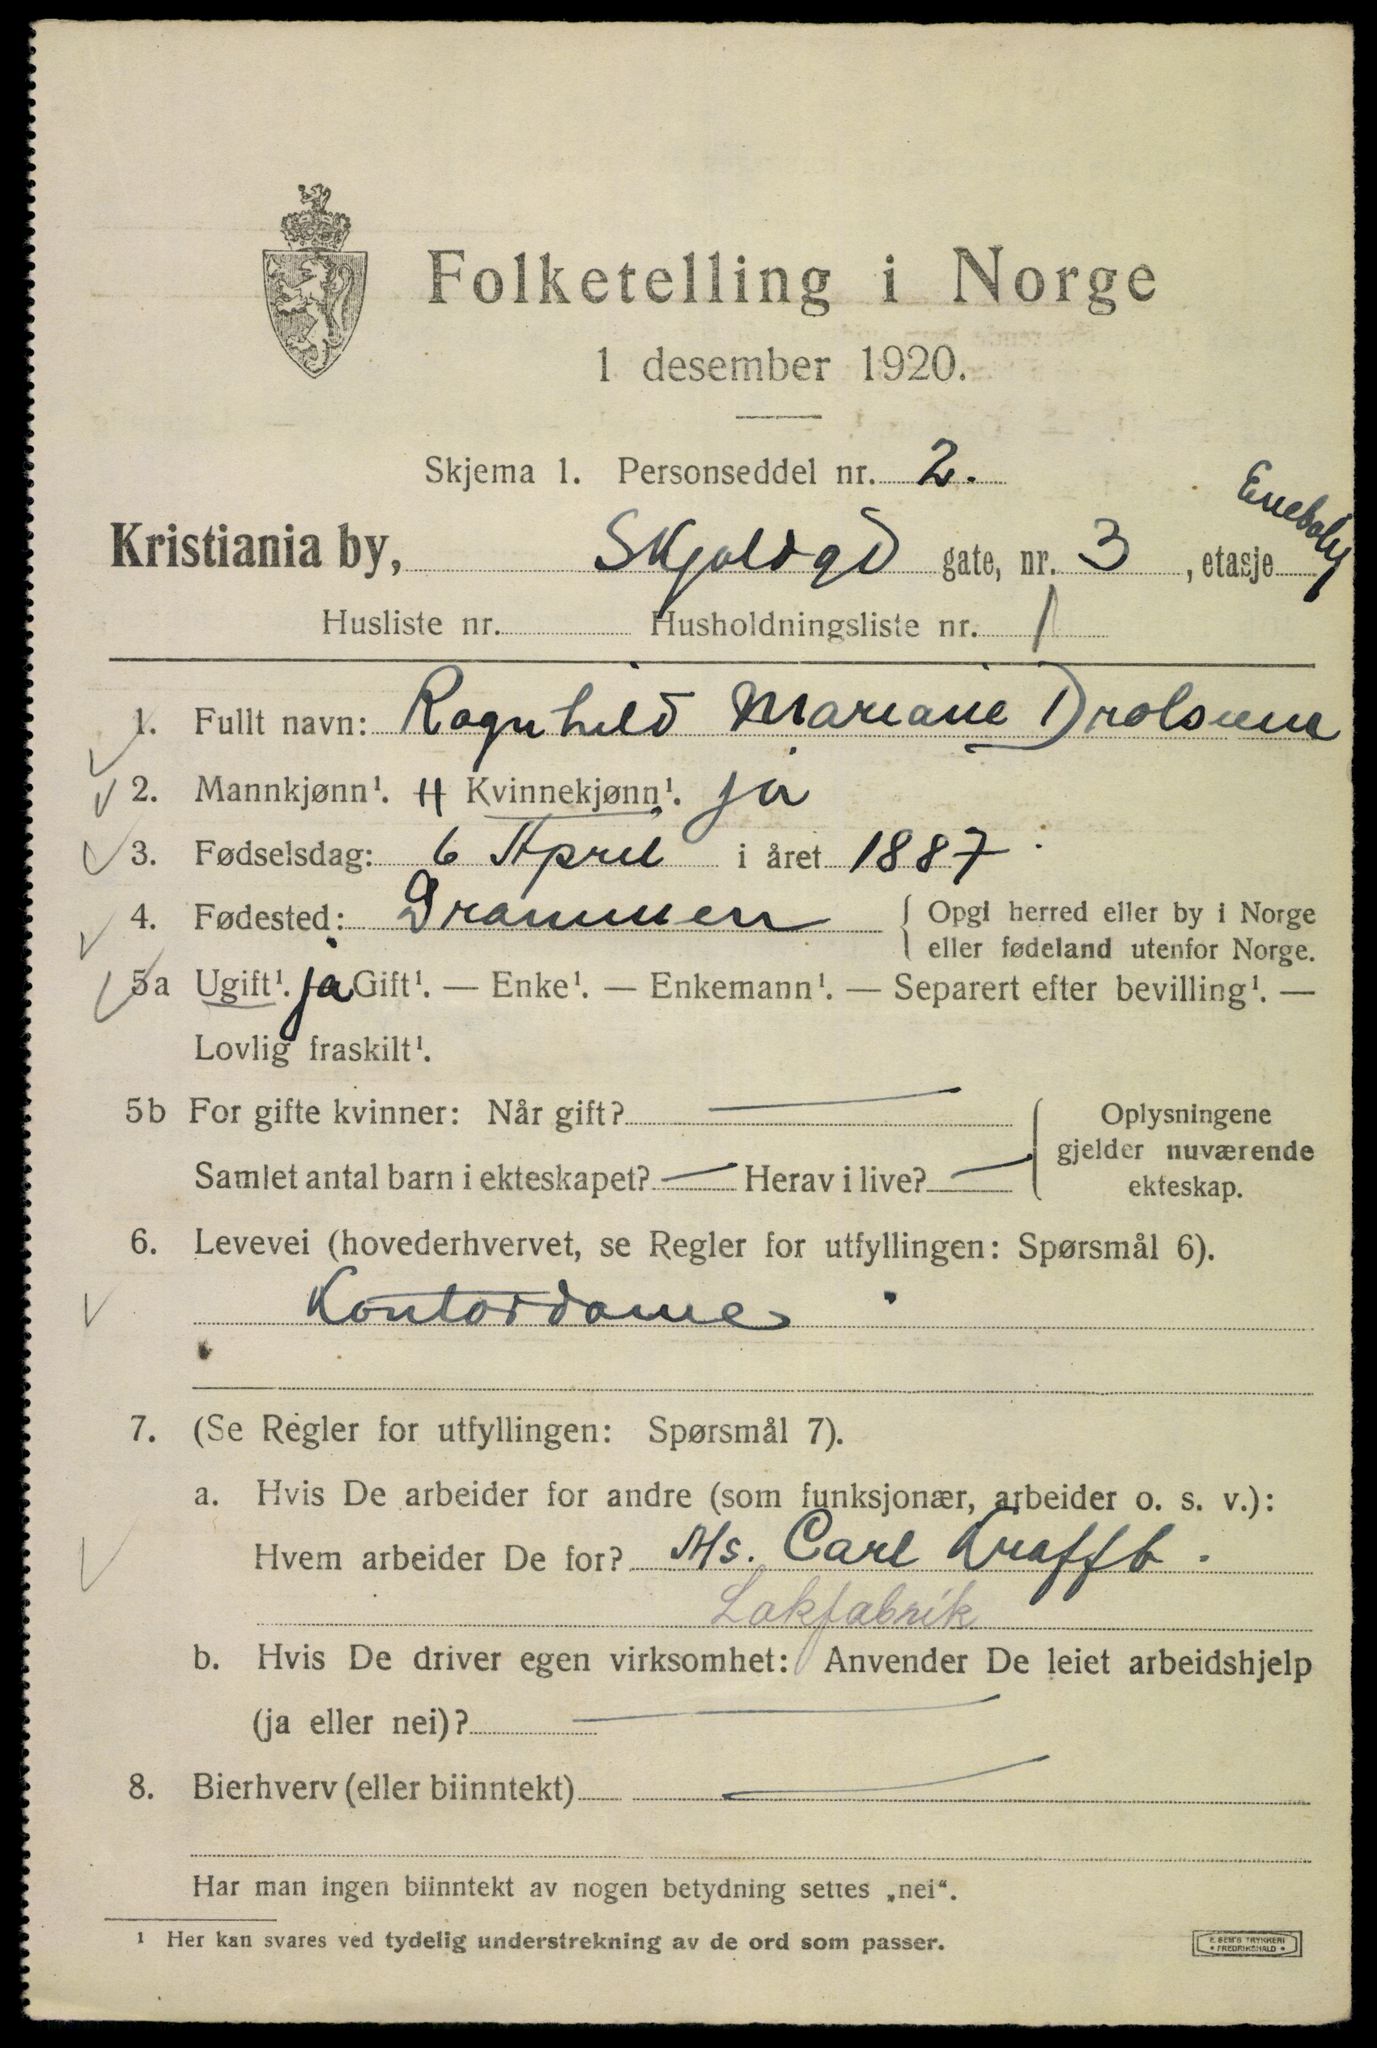 Folketelling i Norge
1 desember 1920.
Skjema 1. Personseddel nr. 2.
Enebolig
Kristiania by, Skjoldgd gate, nr. 3, etasje
Husliste nr. Husholdningsliste nr. 1
1. Fullt navn: Ragnhild Mariane Drolsum
2. Mannkjønn¹. H Kvinnekjønn¹. ja
3. Fødselsdag: 6 April i året 1887.
4. Fødested: Drammen { Opgi herred eller by i Norge
eller fødeland utenfor Norge.
5a Ugift¹. ja Gift¹. — Enke¹. — Enkemann¹. — Separert efter bevilling¹. —
Lovlig fraskilt¹.
5b For gifte kvinner: Når gift? —
Samlet antal barn i ekteskapet? — Herav i live? — { Oplysningene
gjelder nuværende
ekteskap.
6. Levevei (hovederhvervet, se Regler for utfyllingen: Spørsmål 6).
Kontordame
7. (Se Regler for utfyllingen: Spørsmål 7).
a. Hvis De arbeider for andre (som funksjonær, arbeider o. s. v.):
Hvem arbeider De for? A/s. Carl Krafft.
Lakfabrik
b. Hvis De driver egen virksomhet: Anvender De leiet arbeidshjelp
(ja eller nei)? —
8. Bierhverv (eller biinntekt) —
Har man ingen biinntekt av nogen betydning settes „nei“.
¹ Her kan svares ved tydelig understrekning av de ord som passer.
E. SEM'S TRYKKERI
• FREDRIKSHALD •